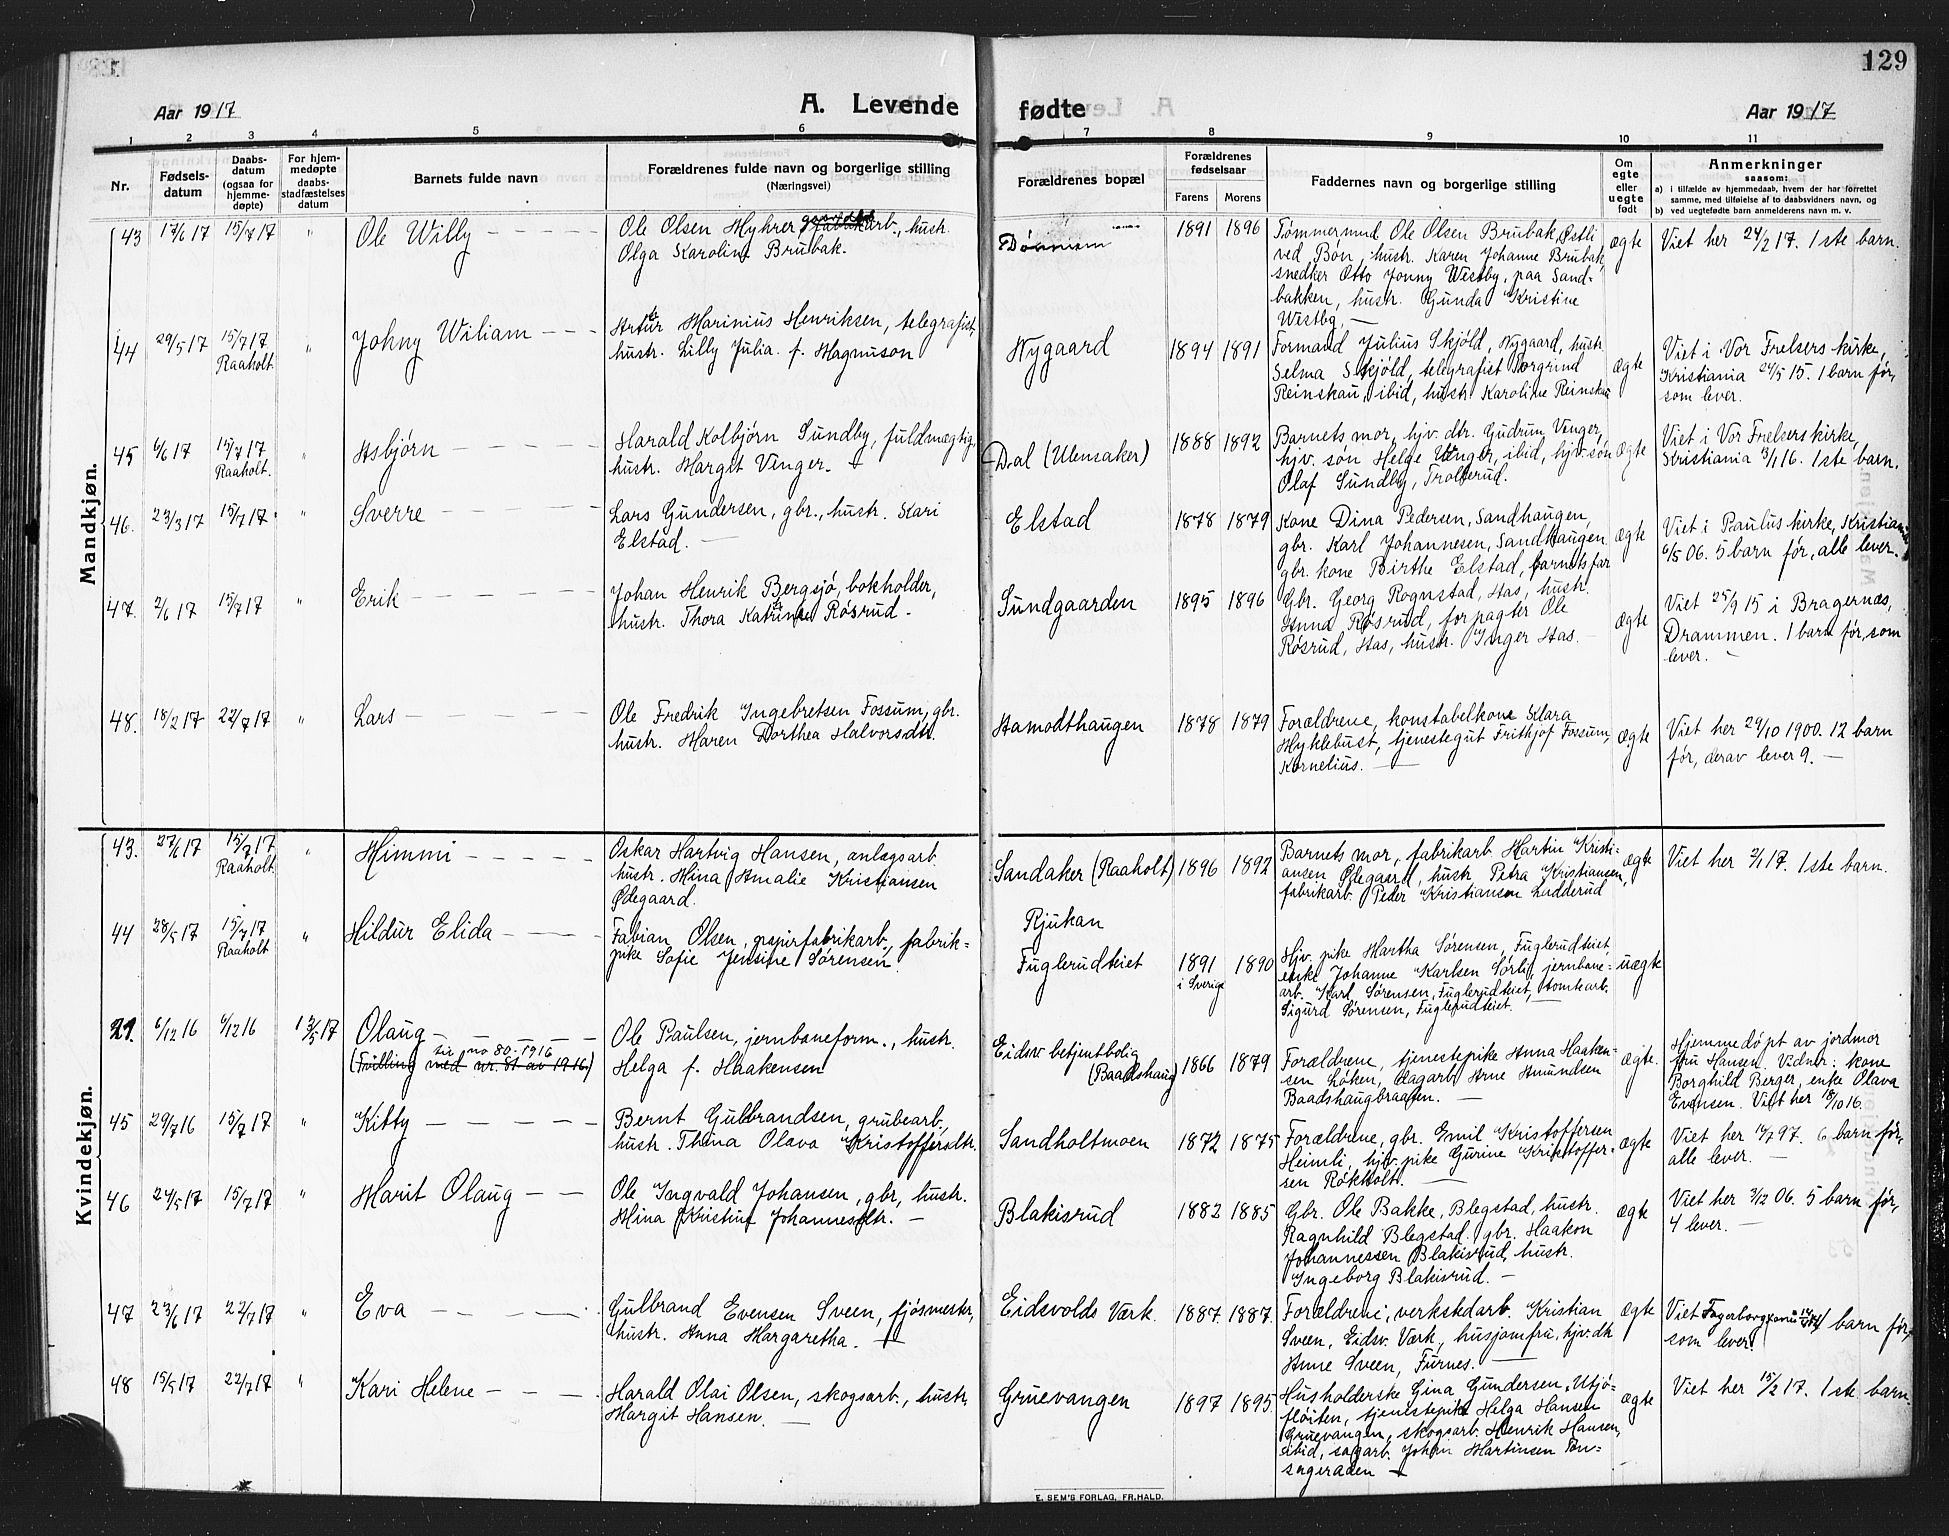 129
Aar 1917
A. Levende fødte
Aar 1917
1 2 3 4 5 6 7 8 9 10 11
Nr.
Fødsels-
datum
Daabs-
datum
(ogsaa for
hjemme-
døpte)
For hjem-
medøpte
daabs-
stadfæstelses
datum
Barnets fulde navn
Forældrenes fulde navn og borgerlige stilling
(Næringsvei)
Forældrenes bopæl
Forældrenes
fødselsaar
Farens Morens
Faddernes navn og borgerlige stilling
Om
egte
eller
uegte
født
Anmerkninger
saasom:
a) i tilfælde av hjemmedaab, hvem der har forrettet
samme, med tilføielse af to daabsvidners navn, og
b) ved uegtefødte barn anmelderens navn m. v.
Mandkjøn.
43 17/6 17 15/7 17 " Ole Willy
Ole Olsen Myhrer, hustr.
Olga Karoline Brubak.
1891 1896
Tømmermand Ole Olsen Brubak, Østli
ved Bøn, hustr. Karen Johanne Brubak,
snedker Otto Jonny Westby, paa Sand-
bakken, hustr. Gunda Kristine
Westby.
ægte
Viet her 24/2 17. 1ste barn.
44 29/5 17 15/7 17 Raaholt " Johny Wiliam
Artur Marinius Henriksen, telegrafist,
hustr. Lilly Julia f. Magnuson
Nygaard
1894 1891
Formand Julius Skjöld, Nygaard, hustr.
Selma Skjöld, telegrafist Torgrind
Reinskau, ibid, hustr. Karoline Reinskau
ægte
Viet i Vor Frelsers kirke,
Kristiania 24/5 15. 1 barn før,
som lever.
45 6/6 17 15/7 17 Raaholt. " Asbjørn
Harald Kolbjørn Sundby, fuldmægtig,
hustr. Margit Vinger.
Dal (Ullensaker)
1888 1892
Barnets mor, hjv. dtr. Gudrun Vinger,
hjv. søn Helge Vinger, ibid, hjv. søn
Olaf Sundby, Trollerud.
ægte
Viet i Vor Frelsers kirke,
Kristiania 3/1 16. 1ste barn.
46. 23/3 17 15/7 17 " Sverre
Lars Gundersen, gbr., hustr. Kari
Elstad.
Elstad
1878 1879
Kone Dina Pedersen, Sandhaugen,
gbr. Karl Johannesen, Sandhaugen
gbr. kone Birthe Elstad, barnets far
ægte
Viet i Paulus kirke, Kristiania
6/5 06. 5 barn før, alle lever.
47. 2/6 17 15/7 17 " Erik
Johan Henrik Bergsjö, bokholder,
hustr. Thora Katrine Røsrud.
Sundgaarden
1895 1896
Gbr. Georg Rognstad, Aas, hustr.
Anna Røsrud, forpagter Ole
Røsrud, Aas, hustr. Inger Aas.
ægte
Viet 25/9 15 i Bragernæs,
Drammen. 1 barn før, som
lever.
48. 18/2 17 22/7 17 " Lars
Ole Fredrik Ingebretsen Fossum, gbr.
hustr. Maren Dorthea Halvorsdtr.
Hamodthaugen
1878 1879
Forældrene, konstabelkone Klara
Myklebust, tjenestegut Frithjof Fossum,
Kornelius.
ægte
Viet her 29/10 1900. 12 barn
før, derav lever 9.
Kvindekjøn.
43. 27/6 17 15/7 17 Raaholt " Mimmi
Oskar Hartvig Hansen, anlægsarb.
hustr. Mina Amalie Kristiansen
Ødegaard.
Sandaker (Raaholt)
1896 1892
Barnets mor, fabrikarb. Martin Kristi-
ansen Ødegaard, hustr. Petra Kristiansen,
fabrikarb. Peder Kristiansen Ladderud
ægte
Viet her 2/1 17. 1ste barn.
44 28/5 17 15/7 17 Raaholt " Hildur Elida
Fabian Olsen, papirfabrikarb., fabrik-
pike Sofie Jensine Sørensen
Rjukan
Fuglerudteiet
1891 i Sverige 1890
Hjv. pike Martha Sørensen, Fuglerudteiet
enke Johanne Karlsen Sørli, jernbane-
arb. Karl Sørensen, Fuglerudteiet, tomtearb.
Sigurd Sørensen, Fuglerudteiet.
uægte
21. 6/12 16 6/12 16 13/5 17 Olaug
no 80-1916
(Tvilling med nr. 81 av 1916)
Ole Paulsen, jernbaneform., hustr.
Helga f. Haakensen
Eidsv betjentbolig
(Baadshaug)
1866 1879
Forældrene, tjenestepike Anna Haaken-
sen Løken, dagarb. Arne Amundsen
Baadshaugbraaten.
ægte.
Hjemmedöpt av jordmor
fru Hansen. Vidner: kone
Borghild Berger, enke Olava
Evensen. Viet her 18/10 16.
45 29/7 16 15/7 17 " Kitty
Bernt Gulbrandsen, grubearb.,
hustr. Thina Olava Kristoffersdtr.
Sandholtmoen
1872 1875
Forældrene, gbr. Emil Kristoffersen
Heimli, hjv. pike Gurine Kristoffer-
sen Røkholt.
ægte
Viet her 14/7 97. 6 barn før,
alle lever.
46 24/5 17 15/7 17 " Marit Olaug
Ole Ingvald Johansen, gbr, hustr.
Mina Kristine Johannesdtr.
Blakisrud
1882 1885
Gbr. Ole Bakke, Blegstad, hustr.
Ragnhild Blegstad, gbr. Haakon
Johannessen Blakisrud, hustr.
Ingeborg Blakisrud.
ægte
Viet her 2/12 06. 5 barn før,
4 lever.
47 23/6 17 22/7 17 " Eva
Gulbrand Evensen Sveen, fjøsmestr,
hustr. Anna Margaretha.
Eidsvolds Værk.
1887. 1887.
Forældrene, verkstdarb. Kristian
Sveen, Eidsv. Værk, husjomfru, hjv. dtr.
Anne Sveen, Furnes.
ægte
Viet Fagerborg 1 barn før,
som lever.
48 15/5 17 22/7 17 " Kari Helene
Harald Olai Olsen, skogsarb., hustr,
Margit Hansen.
Gruevangen
1897 1895.
Husholderske Gina Gundersen, Utjö-
flöiten, tjenestepike Helga Hansen
Gruevangen, skogsarb. Henrik Hansen,
ibid, sagarb. Johan Martinsen
ægte
Viet her 15/2 17. 1ste barn.
E. SEM'S FORLAG, FR.HALD.